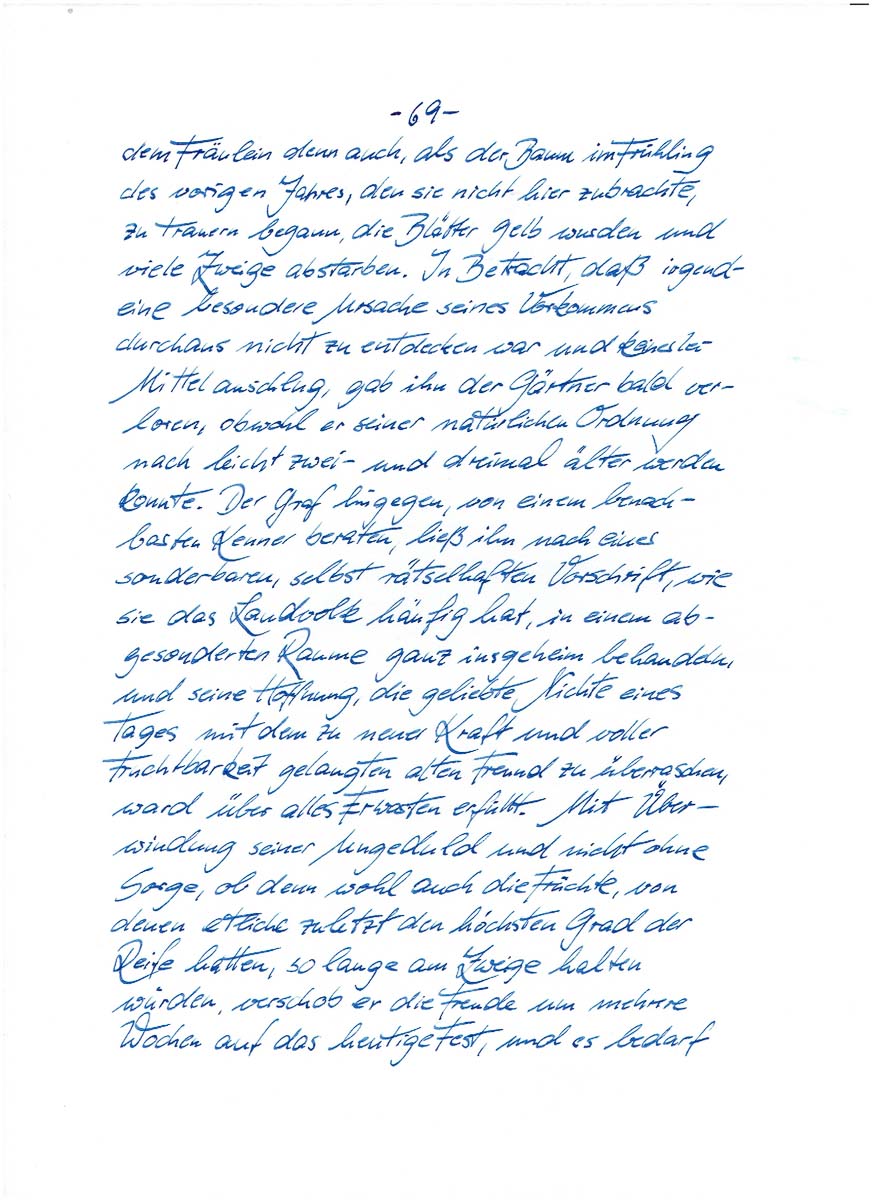 -69-
dem Fräulein denn auch, als der Baum im Frühling
des vorigen Jahres, den sie nicht hier zubrachte,
zu trauern begann, die Blätter gelb wurden und
viele Zweige abstarben. In Betracht, daß irgend-
eine besondere Ursache seines Verkommens
durchaus nicht zu entdecken war und keinerlei
Mittel anschlug, gab ihn der Gärtner bald ver-
loren, obwohl er seiner natürlichen Ordnung
nach leicht zwei- und dreimal älter werden
konnte. Der Graf hingegen, von einem benach-
barten Kenner beraten, ließ ihn nach einer
sonderbaren, selbst rätselhaften Vorschrift, wie
sie das Landvolk häufig hat, in einem ab-
gesonderten Raume ganz insgeheim behandeln,
und seine Hoffnung, die geliebte Nichte eines
Tages mit dem zu neuer Kraft und voller
Fruchtbarkeit gelangten alten Freund zu überraschen,
ward über alles Erwarten erfüllt. Mit Über-
windung seiner Ungeduld und nicht ohne
Sorge, ob denn wohl auch die Früchte, von
denen etliche zuletzt den höchsten Grad der
Reife hatten, so lange am Zweige halten
würden, verschob er die Freude um mehrere
Wochen auf das heutige Fest, und es bedarf